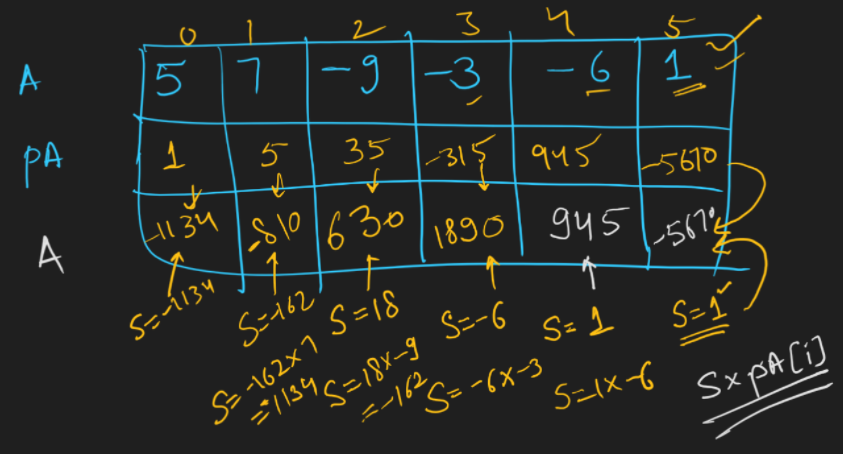 0 1 2 3 4 5
A 5 7 -9 -3 -6 1
pA 1 5 35 -315 945 -5670
A -1134 -810 630 1890 945 -5670
S=-1134 S=-162 S=18 S=-6 S=1 S=1
S=-162×7 S=18×-9 S=-6×-3 S=1×-6 S×pA[i]
=1134 =-162